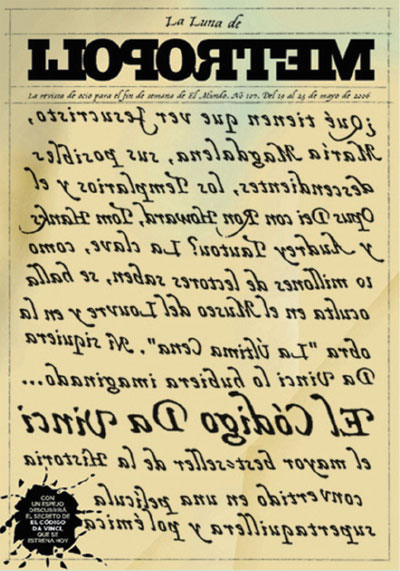 La Luna de
METROPOLI
La revista de ocio para el fin de semana de El Mundo. Nº 107. Del 19 al 25 de mayo de 2006
¿Qué tienen que ver Jesucristo,
María Magdalena, sus posibles
descendientes, los Templarios y el
Opus Dei con Ron Howard, Tom Hanks
y Audrey Tautou? La clave, como
10 millones de lectores saben, se halla
oculta en el Museo del Louvre y en la
obra "La Última Cena". Ni siquiera
Da Vinci lo hubiera imaginado...
El Código Da Vinci
el mayor best-seller de la Historia
convertido en una película
supertaquillera y polémica
CON
UN ESPEJO
DESCUBRIRÁ
EL SECRETO DE
EL CÓDIGO
DA VINCI,
QUE SE
ESTRENA HOY